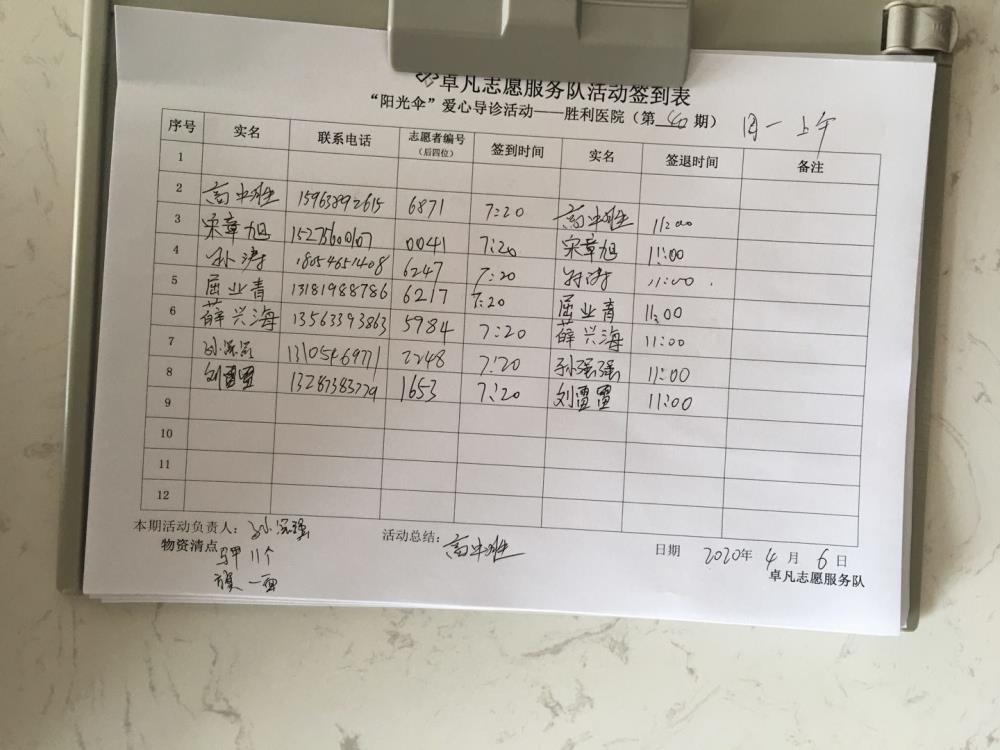 卓凡志愿服务队活动签到表
“阳光伞”爱心导诊活动——胜利医院（第 40 期） 周一 上午
序号 实名 联系电话 志愿者编号（后四位） 签到时间 实名 签退时间 备注
1
2 高中胜 15963892615 6871 7:20 高中胜 11:00
3 宋章旭 15275600107 0041 7:20 宋章旭 11:00
4 孙涛 18054651408 6247 7:20 孙涛 11:00
5 屈业青 13181988786 6217 7:20 屈业青 11:00
6 薛兴海 13563393863 5984 7:20 薛兴海 11:00
7 孙强强 2248 7:20 孙强强 11:00
8 刘雷雷 13287383779 1653 7:20 刘雷雷 11:00
9
10
11
12
本期活动负责人：孙强强 活动总结：高中胜 日期 2020年 4 月 6 日
物资清点 马甲 11个 卓凡志愿服务队
旗 一面